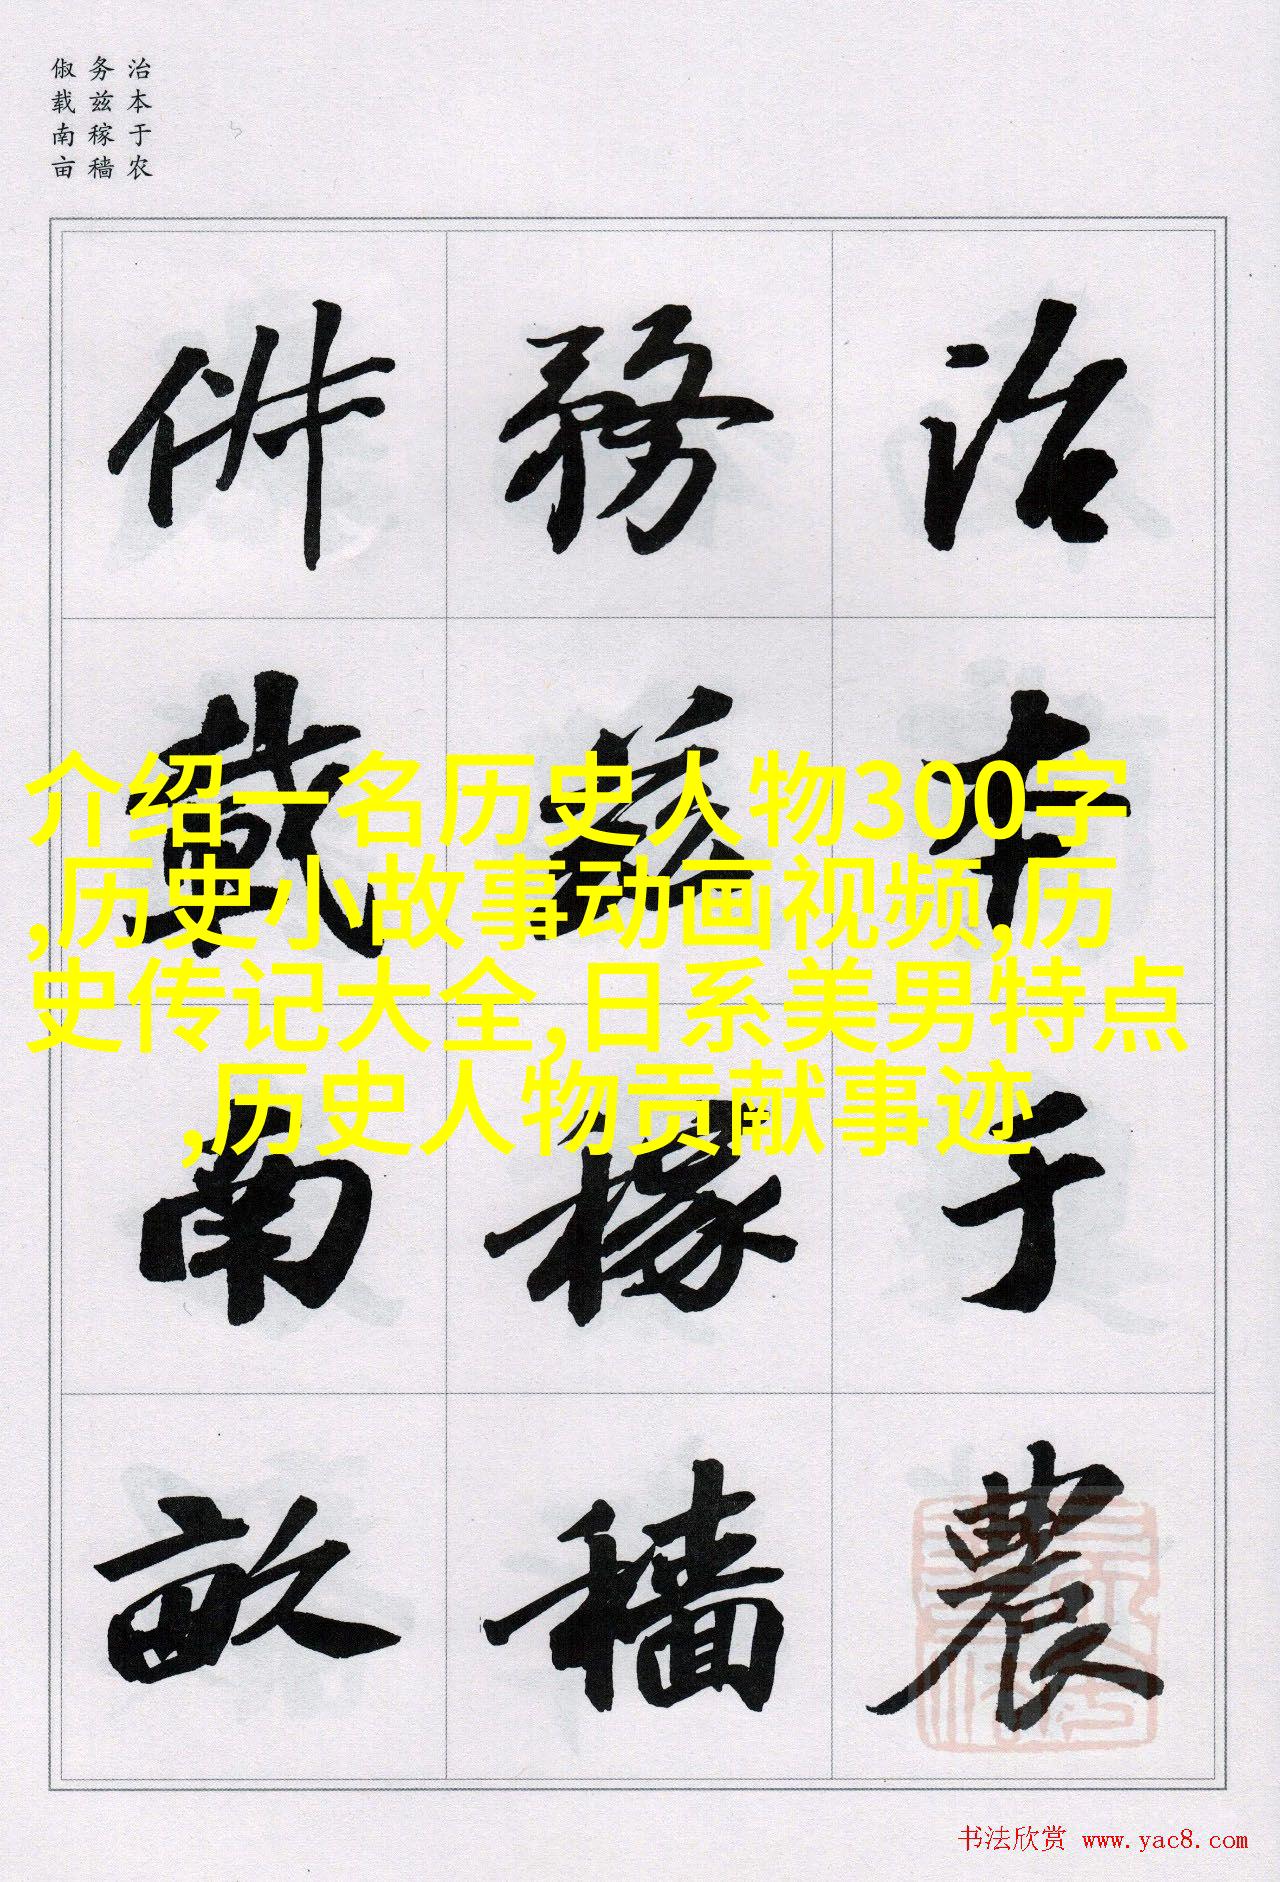 治本于农
务兹稼穑
俶载南亩
治本于農
務兹稼穡
俶載南畝
介绍一名历史人物300字
,历史小故事动画视频,历
史传记大全,日系美男特点
,历史人物贡献事迹
书法欣赏 www.yac8.com